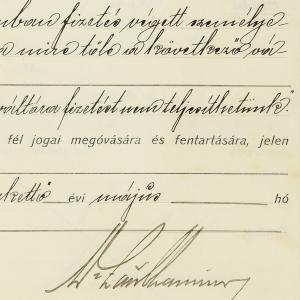 ban fizetés végett személye
a mire tőle a következő vá
váltóra fizetést nem teljesíthetünk."
fél jogai megóvására és fentartására, jelen
kettő évi május hó